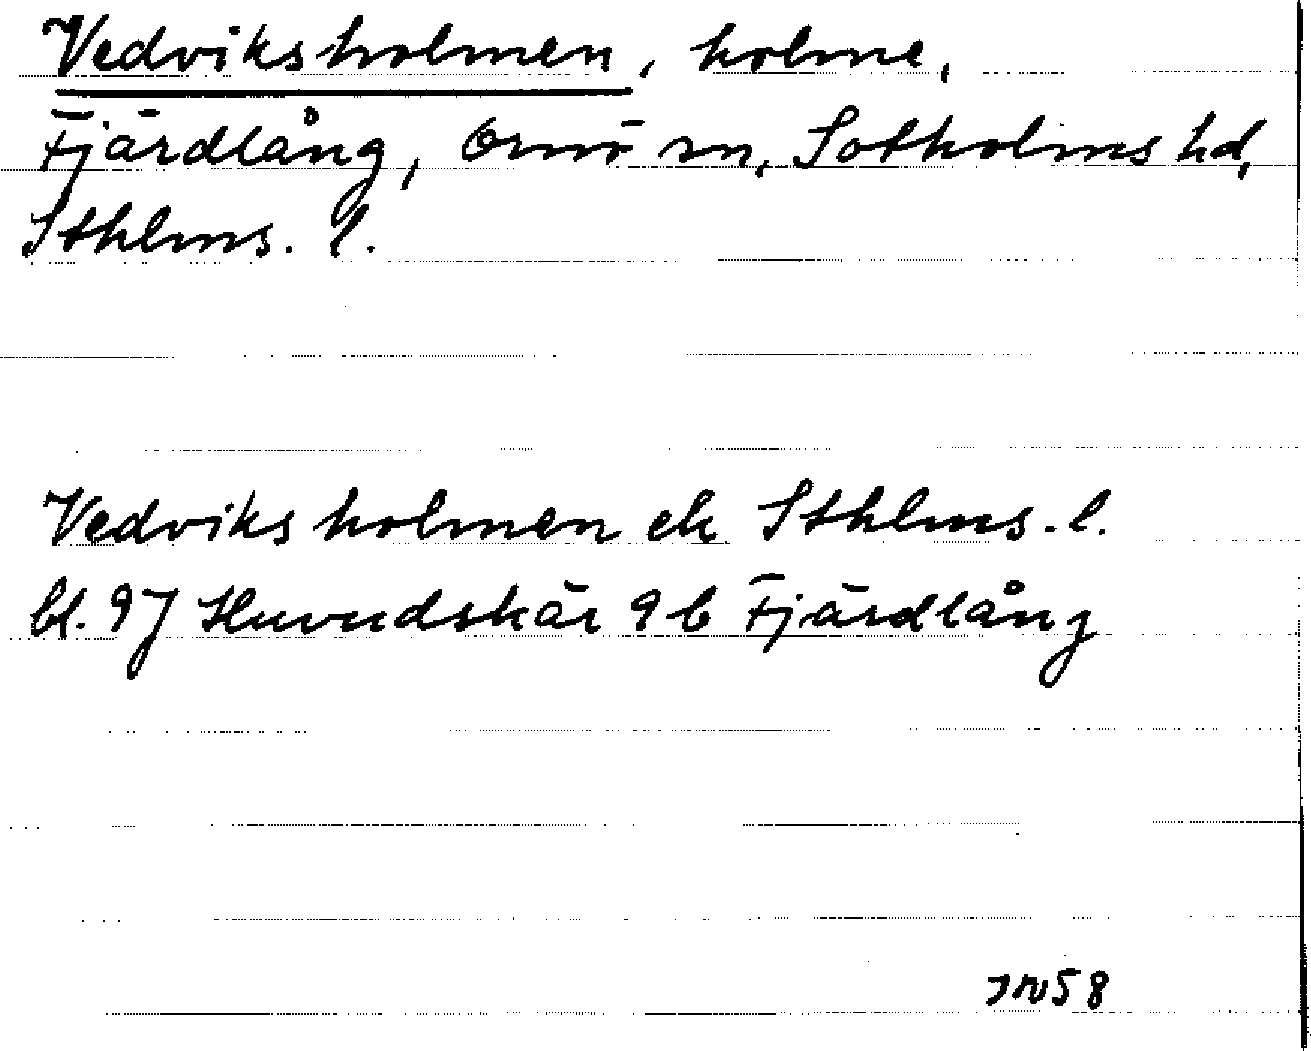 Vedviksholmen, holme,
Fjärdlång, Ornö sn, Sotholms hd,
Sthlms. l.
Vedviksholmen ek Sthlms. l.
bl. 97 Huvudskär 9 b Fjärdlång
58